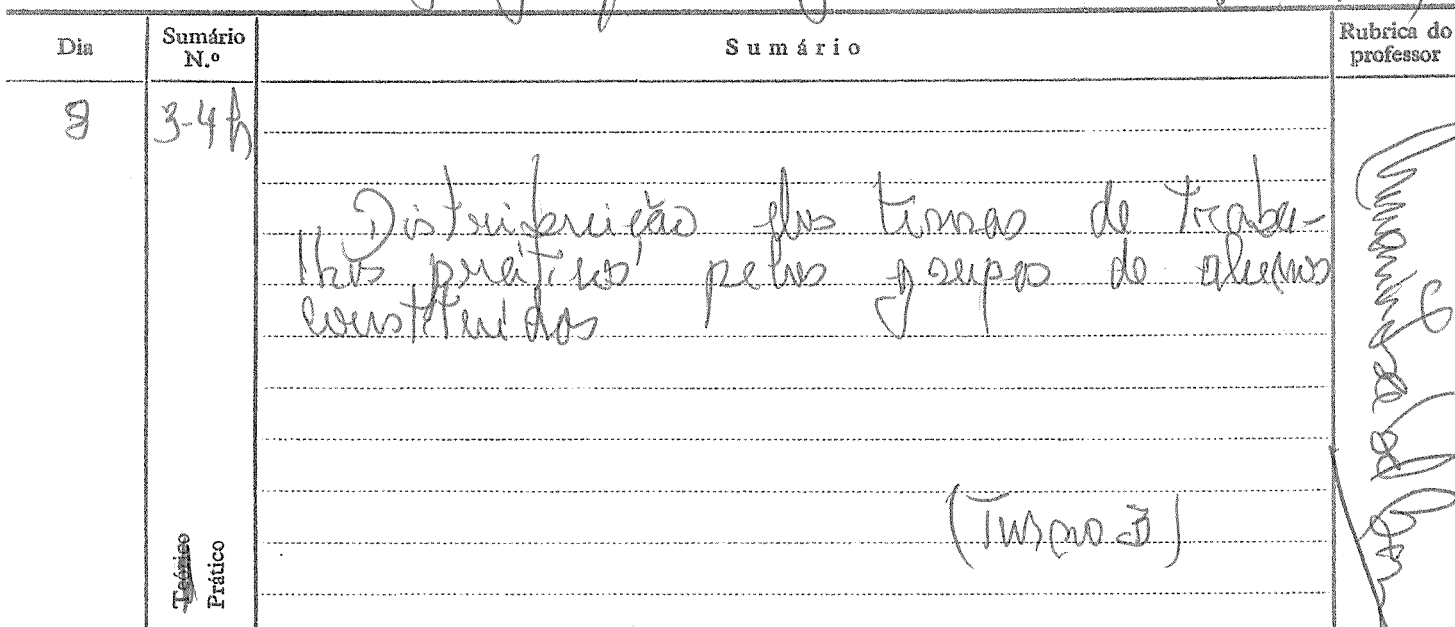 Dia
Sumário N.º
Sumário
Rubrica do professor
8
3-4 h
Distribuição dos temas de traba-
lhos práticos pelos grupos de alunos
constituídos
(Turno
Teórico
Prático